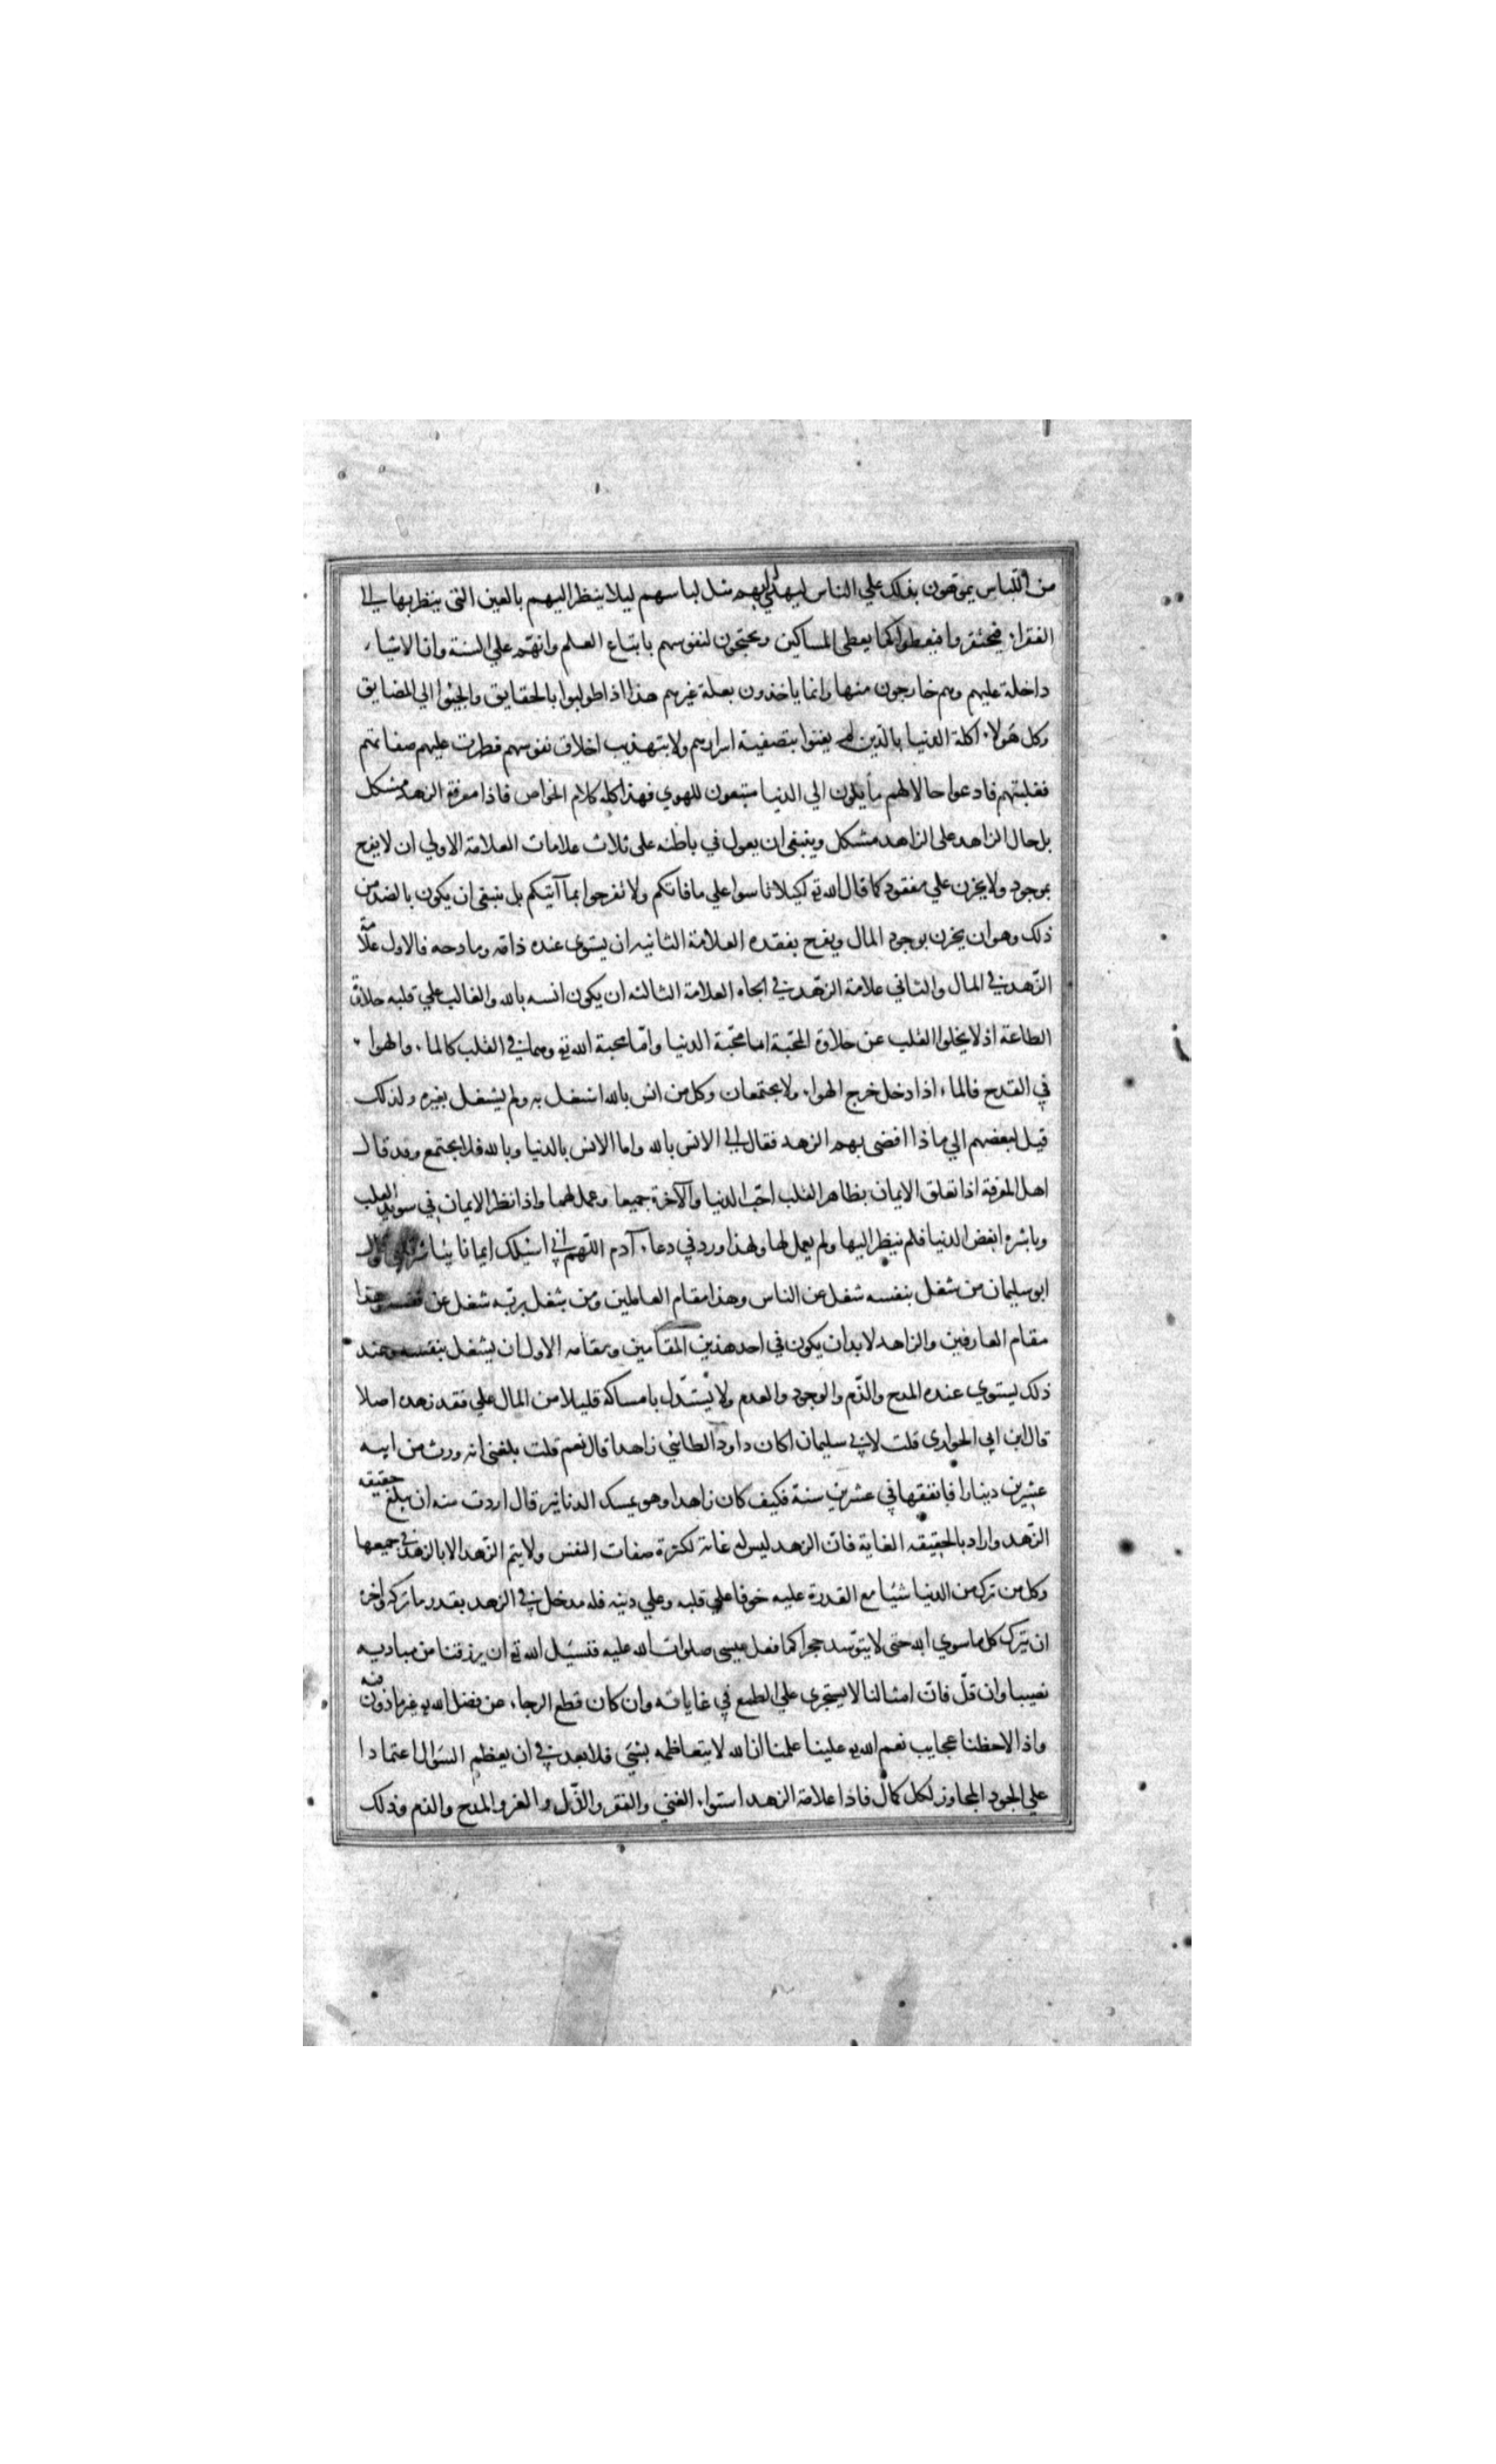 من اللباس يموهون بذلك علي الناس ليهدي اليهم مثل لباسهم ليلا ينظر اليهم بالعين التي ينظر بها الي
الفقراء فيحتقروا فيعطوا كما يعطي المساكين ويحتجون لنفوسهم باتباع العلم وانهم علي السنة وان الاشياء
داخلة عليهم وهم خارجون منها وانما ياخذون بعلة غيرهم هذا اذا طولبوا بالحقايق والجئوا الي المضايق
وكل هولاء اكلة الدنيا بالدين لم يعنوا بتصفية اسرارهم ولا بتهذيب اخلاق نفوسهم فظهرت عليهم صفاتهم
فغلبتهم فادعوا حالا لهم مأيلون الي الدنيا متبعون للهوي فهذا كله كلام الخواص فاذا معرفة الزهد مشكل
بل حال الزاهد علي الزاهد مشكل وينبغي ان يعول في باطنه علي ثلاث علامات العلامة الاولي ان لا يفرح
بموجود ولا يحزن علي مفقود كما قال الله تع لكيلا تاسوا علي ما فاتكم ولا تفرحوا بما آتيكم بل ينبغي ان يكون بالضد من
ذلك وهو ان يحزن بوجود المال ويفرح بفقده العلامة الثانيه ان يستوي عنده ذامه ومادحه فالاول علامة
الزهد في المال والثاني علامة الزهد في الجاه العلامة الثالثه ان يكون انسه بالله والغالب علي قلبه حلاوة
الطاعة اذ لا يخلوا القلب عن حلاوة المحبة اما محبة الدنيا واما محبة الله تع وهما في القلب كالماء والهواء
في القدح فالماء اذا دخل خرج الهواء ولا يجتمعان وكل من انس بالله اشتغل به ولم يشتغل بغيره ولذلك
قيل لبعضهم الي ماذا افضي بهم الزهد فقال الي الانس بالله واما الانس بالدنيا وبالله فلا يجتمع وقد قال
اهل المعرفة اذا تعلق الايمان بظاهر القلب احب الدنيا والآخرة جميعا وعمل لهما واذا نظر الايمان في سويد القلب
وباشره ابغض الدنيا فلم ينظر اليها ولم يعمل لها ولهذا ورد في دعاء آدم اللهم اني اسئلك ايمانا يباشر قلبي وقال
ابو سليمان من شغل بنفسه شغل عن الناس وهذا مقام العاملين ومن شغل بربه شغل عن نفسه وهذا
مقام العارفين والزاهد لا بد ان يكون في احد هذين المقامين ومقامه الاول ان يشغل بنفسه وعند
ذلك يستوي عنده المدح والذم والوجود والعدم ولا يستدل بامساكه قليلا من المال علي فقد زهده اصلا
قال ابن ابي الحواري قلت لابي سليمان اكان داود الطائي زاهدا قال نعم قلت بلغني انه ورث من ابيه
عشرين دينارا فانفقها في عشرين سنة فكيف كان زاهدا وهو يمسك الدنانير قال اردت منه ان يبلغ حقيقه
الزهد واراد بالحقيقه الغاية فان الزهد ليس له غاية لكثرة صفات النفس ولا يتم الزهد الا بالزهد في جميعها
وكل من ترك من الدنيا شيئا مع القدرة عليه خوفا علي قلبه وعلي دينه فله مدخل في الزهد بقدر ما تركه واخره
ان يترك كل ما سوي الله حتي لا يتوسد حجرا كما فعل عيسي صلوات الله عليه فنسئل الله تع ان يرزقنا من مباديه
نصيبا وان قل فان امثالنا لا يستجري علي الطمع في غاياته وان كان قطع الرجاء عن فضل الله تع غير ماذون فيه
واذا لاحظنا عجايب نعم الله تع علينا علمنا ان الله لا يتعاظمه شيئ فلا بعد في ان يعظم السوال اعتمادا
علي الجود المجاوز لكل كمال فاذا علامة الزهد استواء الغني والفقر والذل والعز والمدح والذم وذلك